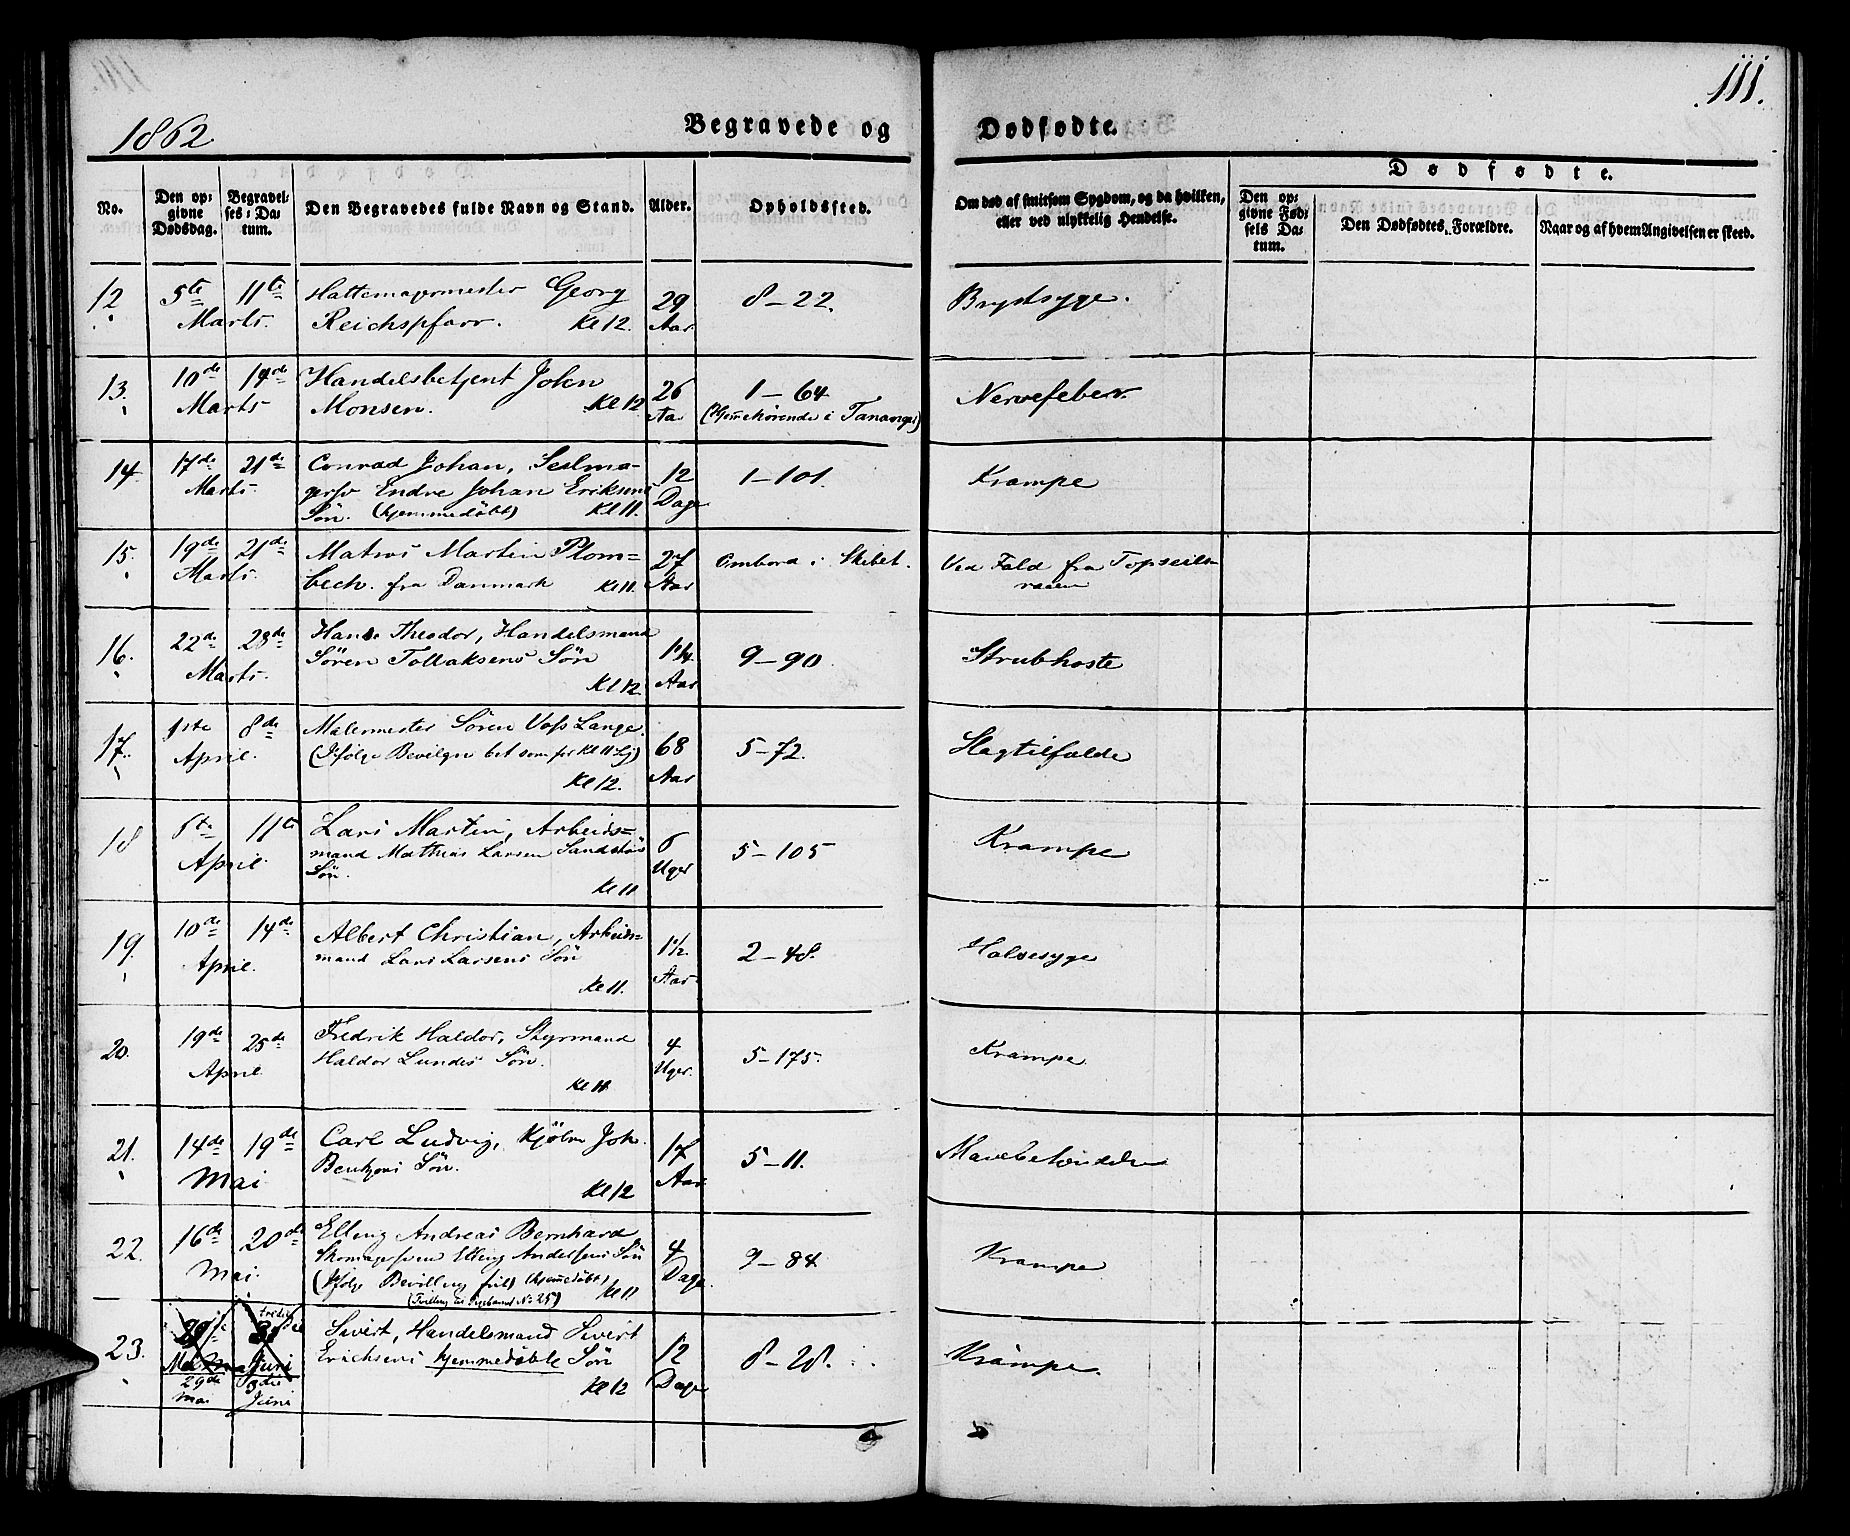 111.
1862.
Begravede og Dødfødte.
No.
Den opgivne Dødsdag.
Begravelses-Datum.
Den Begravedes fulde Navn og Stand.
Alder.
Opholdssted.
Om død af smitsom Sygdom, og da hvilken, eller ved ulykkelig Hendelse.
Dødfødte.
Den opgivne Fødsels Datum.
Den Dødfødtes Forældre.
Naar og af hvem Angivelsen er skeed.
12 5te 11te Hattemagermester Georg 29 8-22. Brystsyge.
Marts. Reichspfarr. Kl 12. Aar
13. 10de 14de Handelsbetjent John 26 1-64 Nervefeber.
Marts Monsen. Kl 12 Aa (hjemmehørende i Tananger)
14. 17de 21de Conrad Johan, Seilma- 12 1-101. Krampe
Marts. gersv Endre Johan Eriksens Dage
Søn. (hjemmedøbt) Kl 11.
15. 19de 21de Matius Martin Plom= 27 Ombord i Skibet. Ved Fald fra Topseils-
Marts. bech. fra Danmark Kl 11. Aar raaen
16. 22de 28de Hans Theodor, Handelsmand 1 1/4 9-90 Strubhoste
Marts. Sören Tollaksens Sön Aar
Kl 12
17. 1ste 8de Malermester Sören Voss Lange. 68 5-72. Slagtilfælde
April. (Ifølge Bevilgn bet som for Kl 11 Lig) Aar
Kl 12.
18 6te 11te Lars Martin, Arbeids= 6 5-105 Krampe
April. mand Matthias Larsen Sandstøls Uger
Søn. Kl 11
19. 10de 14de Albert Christian, Arbeids= 1 1/2 2-48. Halsesyge
April. mand Lars Larsens Sön Aar
Kl 11.
20. 19de 25de Fredrik Haldor, Styrmand 4 5-175. Krampe
April. Haldor Lundes Sön. Uger.
Kl 11
21. 14de 19de Carl Ludvig, Joh. 17 5-11.
Mai Bentzens Sön. Aar
Kl 12
22. 16de 20de Elling Andreas Bernhard 4 9-84 Krampe
Mai. Skomagersvend Elling Andersens Sön Dage.
(Ifølge Bevilling frit) (hjemmedøbt) Kl 11
(Tvilling No 25)
23. Sivert, Handelsmand Sivert 12 8-28. Krampe.
Juni Erichsens hjemmedöbte Sön Dage
29de Mai 3die Juni Kl 12